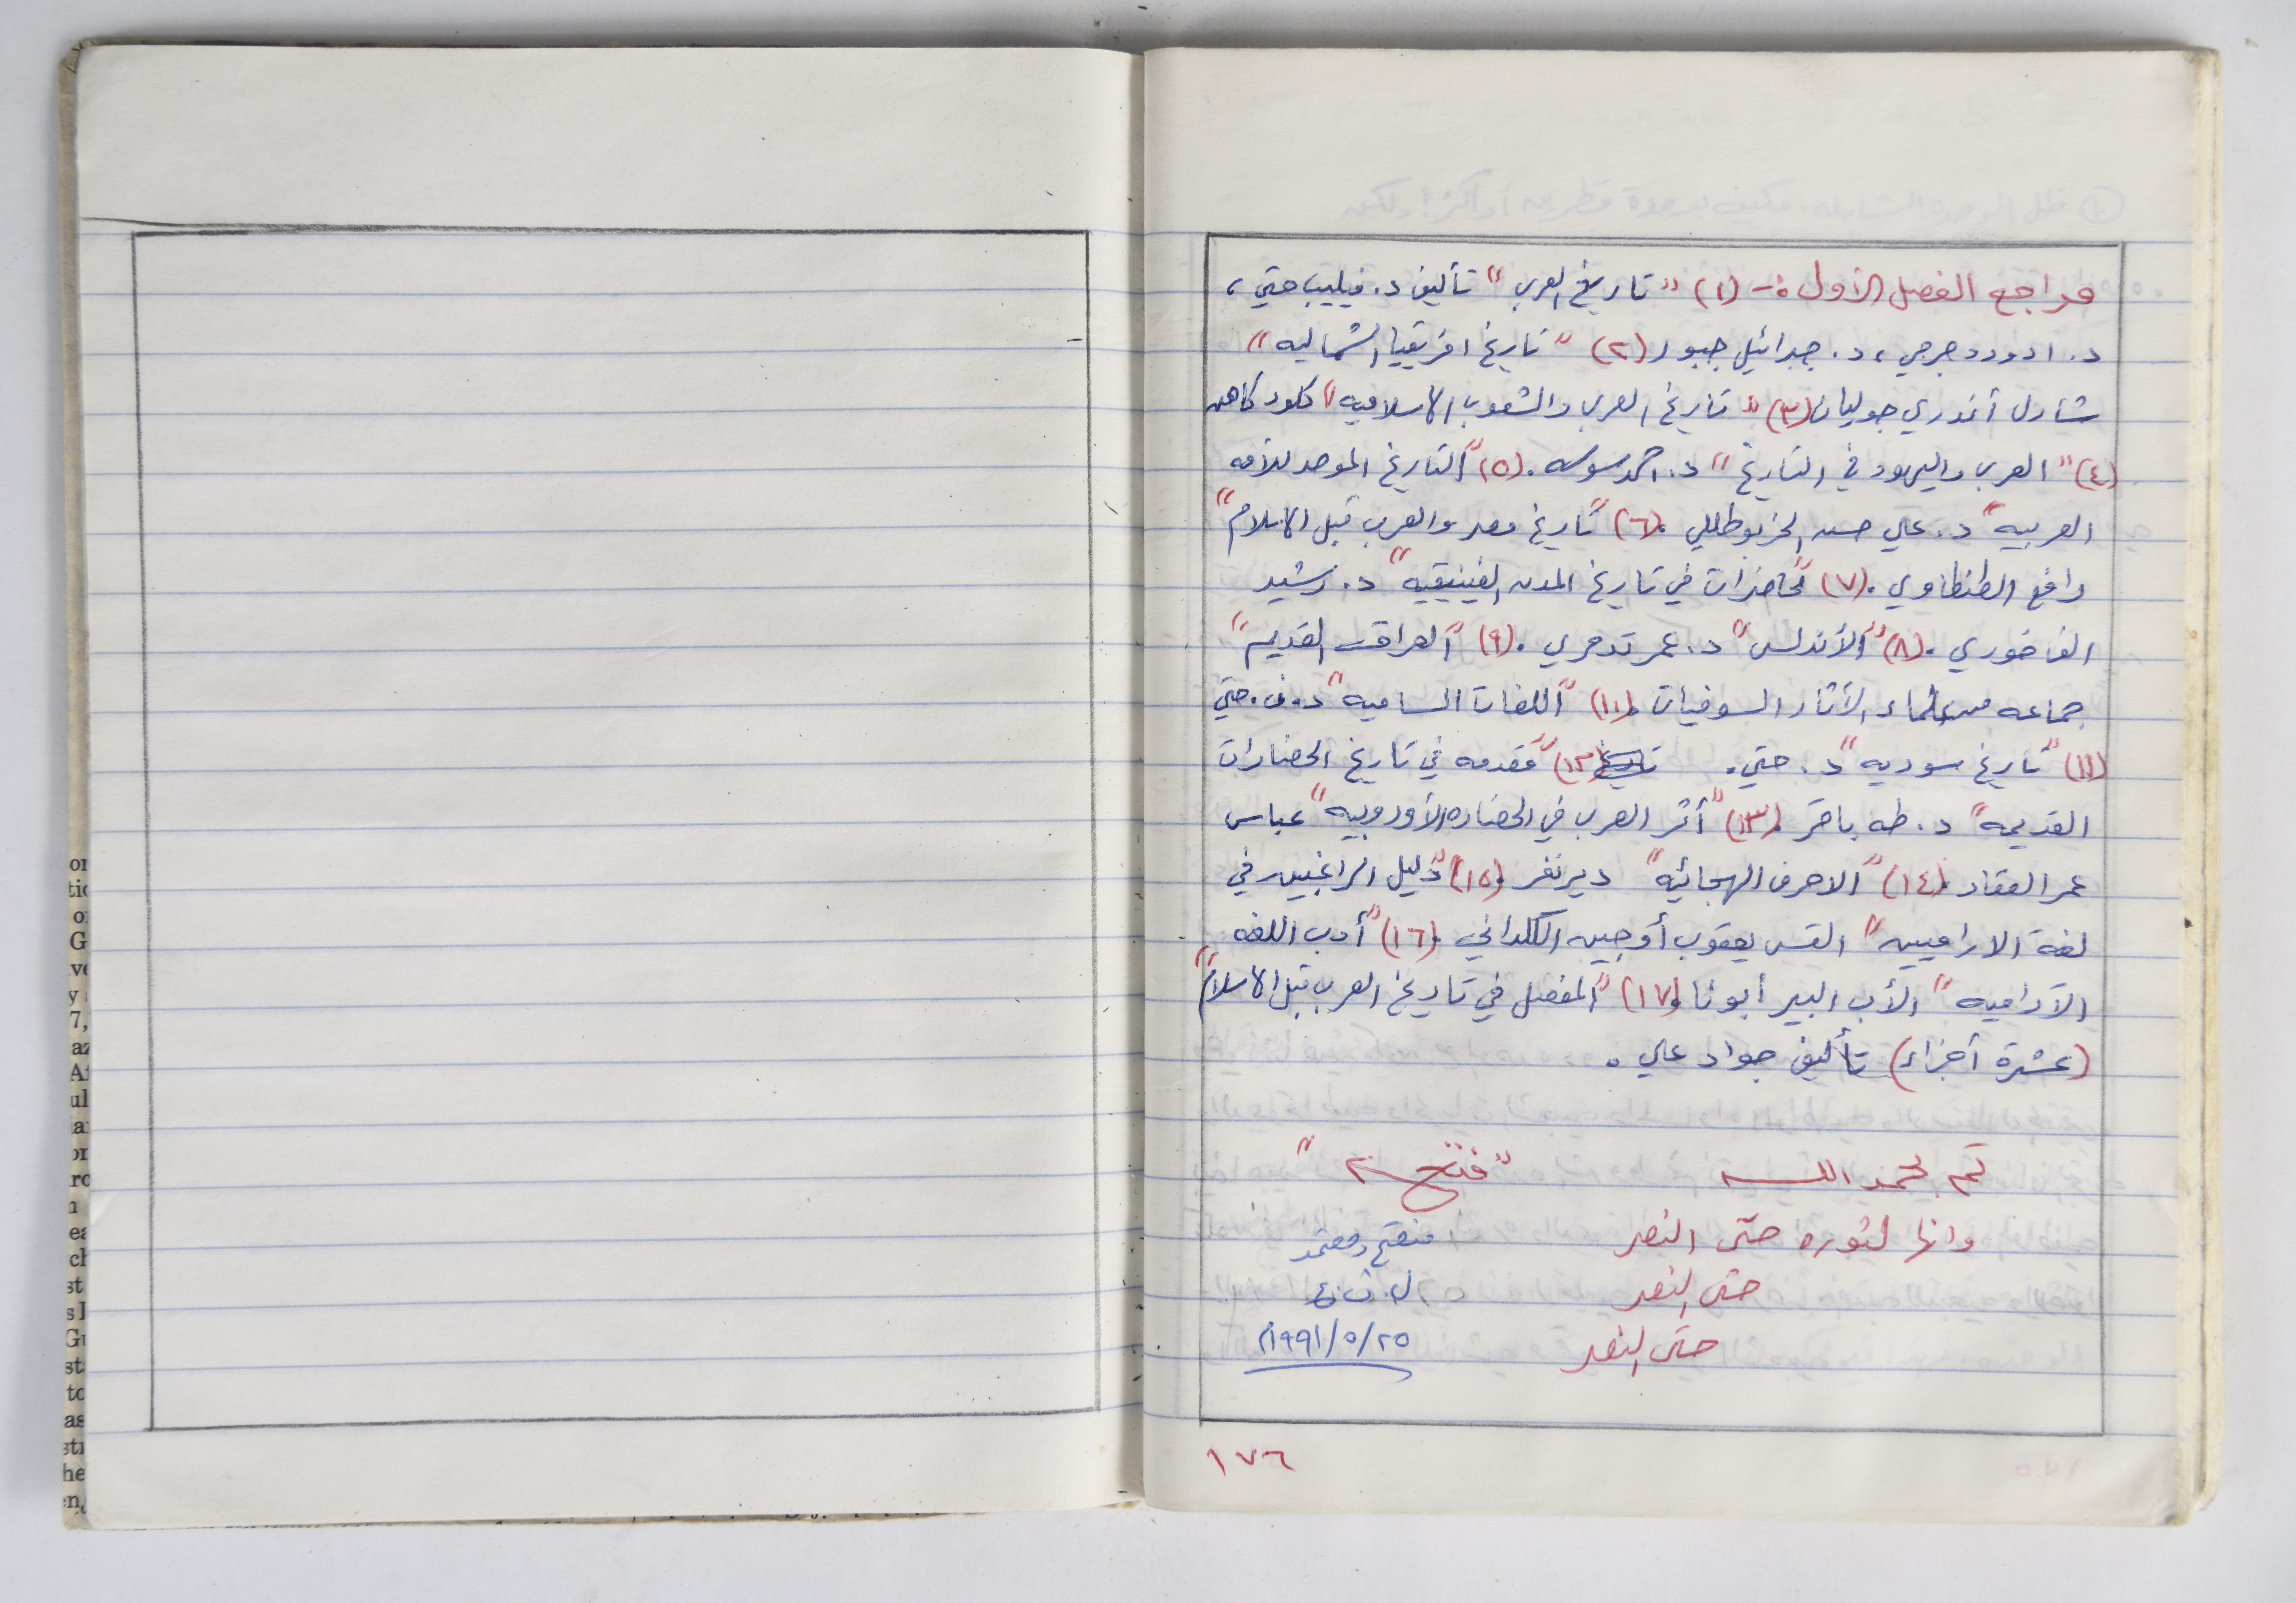 مراجع الفصل الأول :- (١) "تاريخ العرب" تأليف د. فيليب حتي ،
د. ادورد جرجي ، د. جبرائيل جبور (٢) "تاريخ افريقيا الشماليه"
شارل أندري جوليان (٣) "تاريخ العرب والشعوب الاسلاميه" كلود كاهن
(٤) "العرب واليهود في التاريخ" د. احمد سوسه . (٥) "التاريخ الموحد للأمه
العربيه" د. علي حسن الخربوطللي . (٦) "تاريخ مصر والعرب قبل الاسلام"
رافع الطنطاوي . (٧) "محاضرات في تاريخ المدن الفينيقيه" د. رشيد
الفاخوري . (٨) "الأندلس" د. عمر تدمري . (٩) "العراق القديم"
جماعه من علماء الآثار السوفيات . (١٠) "اللغات الساميه" د. ف. حتي
(١١) "تاريخ سوريه" د. حتي . تاريخ (١٢) "مقدمه في تاريخ الحضارات
القديمه" د. طه باقر . (١٣) "أثر العرب في الحضاره الأوروبيه" عباس
عمر العقاد . (١٤) "الاحرف الهجائيه" ديرنفر . (١٥) "دليل الراغبين في
لغة الاراميين" القس يعقوب أوجين الكلداني . (١٦) "أدب اللغه
الآراميه" الأب البير أبونا . (١٧) "المفصل في تاريخ العرب قبل الاسلام"
(عشرة أجزاء) تأليف جواد علي .
تم بحمد الله "فتح"
وانها لثوره حتى النصر منقح ومعتمد
حتى النصر ل. ت. ع
حتى النصر ٢٥/٥/١٩٩١م
١٧٦